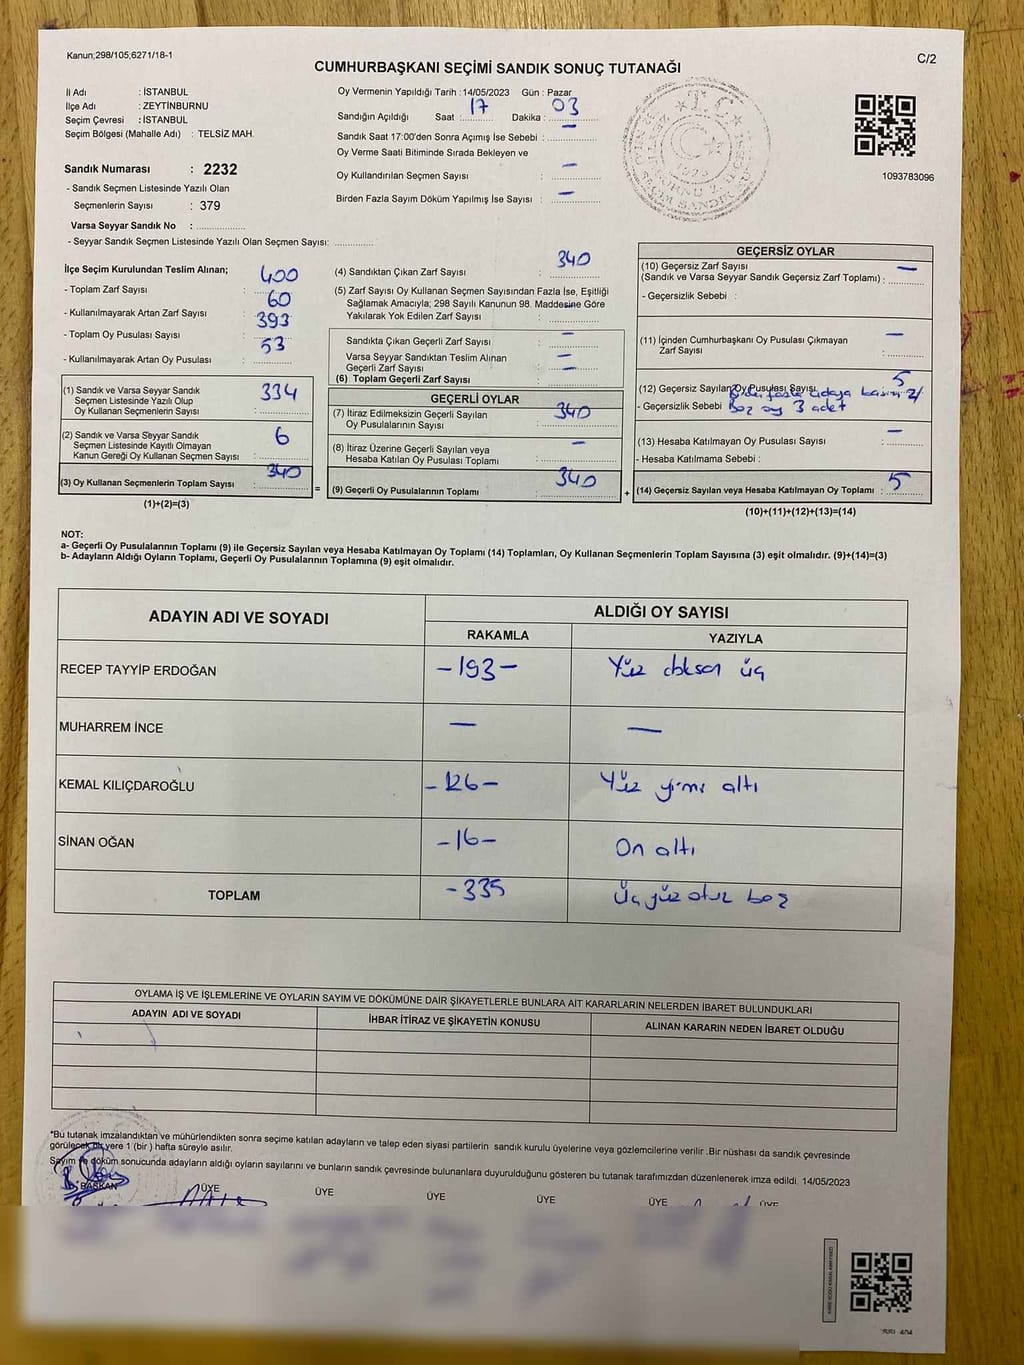 Kanun;298/105;6271/18-1
C/2
CUMHURBAŞKANI SEÇİMİ SANDIK SONUÇ TUTANAĞI
İl Adı : İSTANBUL
İlçe Adı : ZEYTİNBURNU
Seçim Çevresi : İSTANBUL
Seçim Bölgesi (Mahalle Adı) : TELSİZ MAH.
Sandık Numarası : 2232
- Sandık Seçmen Listesinde Yazılı Olan
Seçmenlerin Sayısı : 379
Varsa Seyyar Sandık No :
- Seyyar Sandık Seçmen Listesinde Yazılı Olan Seçmen Sayısı:
Oy Vermenin Yapıldığı Tarih : 14/05/2023 Gün : Pazar
Sandığın Açıldığı Saat : 17 Dakika : 03
Sandık Saat 17:00'den Sonra Açımış İse Sebebi : —
Oy Verme Saati Bitiminde Sırada Bekleyen ve
Oy Kullandırılan Seçmen Sayısı : —
Birden Fazla Sayım Döküm Yapılmış İse Sayısı : —
1093783096
İlçe Seçim Kurulundan Teslim Alınan;
- Toplam Zarf Sayısı : 400
- Kullanılmayarak Artan Zarf Sayısı : 60
- Toplam Oy Pusulası Sayısı : 393
- Kullanılmayarak Artan Oy Pusulası : 53
(1) Sandık ve Varsa Seyyar Sandık
Seçmen Listesinde Yazılı Olup
Oy Kullanan Seçmenlerin Sayısı : 334
(2) Sandık ve Varsa Seyyar Sandık
Seçmen Listesinde Kayıtlı Olmayan
Kanun Gereği Oy Kullanan Seçmen Sayısı : 6
(3) Oy Kullanan Seçmenlerin Toplam Sayısı : 340
(1)+(2)=(3)
(4) Sandıktan Çıkan Zarf Sayısı : 340
(5) Zarf Sayısı Oy Kullanan Seçmen Sayısından Fazla İse, Eşitliği
Sağlamak Amacıyla; 298 Sayılı Kanunun 98. Maddesine Göre
Yakılarak Yok Edilen Zarf Sayısı :
Sandıkta Çıkan Geçerli Zarf Sayısı : —
Varsa Seyyar Sandıktan Teslim Alınan
Geçerli Zarf Sayısı : —
(6) Toplam Geçerli Zarf Sayısı : —
GEÇERLİ OYLAR
(7) İtiraz Edilmeksizin Geçerli Sayılan
Oy Pusulalarının Sayısı : 340
(8) İtiraz Üzerine Geçerli Sayılan veya
Hesaba Katılan Oy Pusulası Toplamı : —
= (9) Geçerli Oy Pusulalarının Toplamı : 340
GEÇERSİZ OYLAR
(10) Geçersiz Zarf Sayısı
(Sandık ve Varsa Seyyar Sandık Geçersiz Zarf Toplamı) : —
- Geçersizlik Sebebi :
(11) İçinden Cumhurbaşkanı Oy Pusulası Çıkmayan
Zarf Sayısı : —
(12) Geçersiz Sayılan Oy Pusulası Sayısı 5
- Geçersizlik Sebebi fazla basım 2/
Boş oy 3 adet
(13) Hesaba Katılmayan Oy Pusulası Sayısı : —
- Hesaba Katılmama Sebebi :
+ (14) Geçersiz Sayılan veya Hesaba Katılmayan Oy Toplamı : 5
(10)+(11)+(12)+(13)=(14)
NOT:
a- Geçerli Oy Pusulalarının Toplamı (9) ile Geçersiz Sayılan veya Hesaba Katılmayan Oy Toplamı (14) Toplamları, Oy Kullanan Seçmenlerin Toplam Sayısına (3) eşit olmalıdır. (9)+(14)=(3)
b- Adayların Aldığı Oyların Toplamı, Geçerli Oy Pusulalarının Toplamına (9) eşit olmalıdır.
ADAYIN ADI VE SOYADI ALDIĞI OY SAYISI
RAKAMLA YAZIYLA
RECEP TAYYİP ERDOĞAN -193- Yüz doksan üç
MUHARREM İNCE — —
KEMAL KILIÇDAROĞLU -126- Yüz yirmi altı
SİNAN OĞAN -16- On altı
TOPLAM -335 Üçyüz otuz beş
OYLAMA İŞ VE İŞLEMLERİNE VE OYLARIN SAYIM VE DÖKÜMÜNE DAİR ŞİKAYETLERLE BUNLARA AİT KARARLARIN NELERDEN İBARET BULUNDUKLARI
ADAYIN ADI VE SOYADI İHBAR İTİRAZ VE ŞİKAYETİN KONUSU ALINAN KARARIN NEDEN İBARET OLDUĞU
*Bu tutanak imzalandıktan ve mühürlendikten sonra seçime katılan adayların ve talep eden siyasi partilerin sandık kurulu üyelerine veya gözlemcilerine verilir .Bir nüshası da sandık çevresinde
görülecek bir yere 1 (bir ) hafta süreyle asılır.
Sayım ve döküm sonucunda adayların aldığı oyların sayılarını ve bunların sandık çevresinde bulunanlara duyurulduğunu gösteren bu tutanak tarafımızdan düzenlenerek imza edildi. 14/05/2023
BAŞKAN ÜYE ÜYE ÜYE ÜYE ÜYE ÜYE